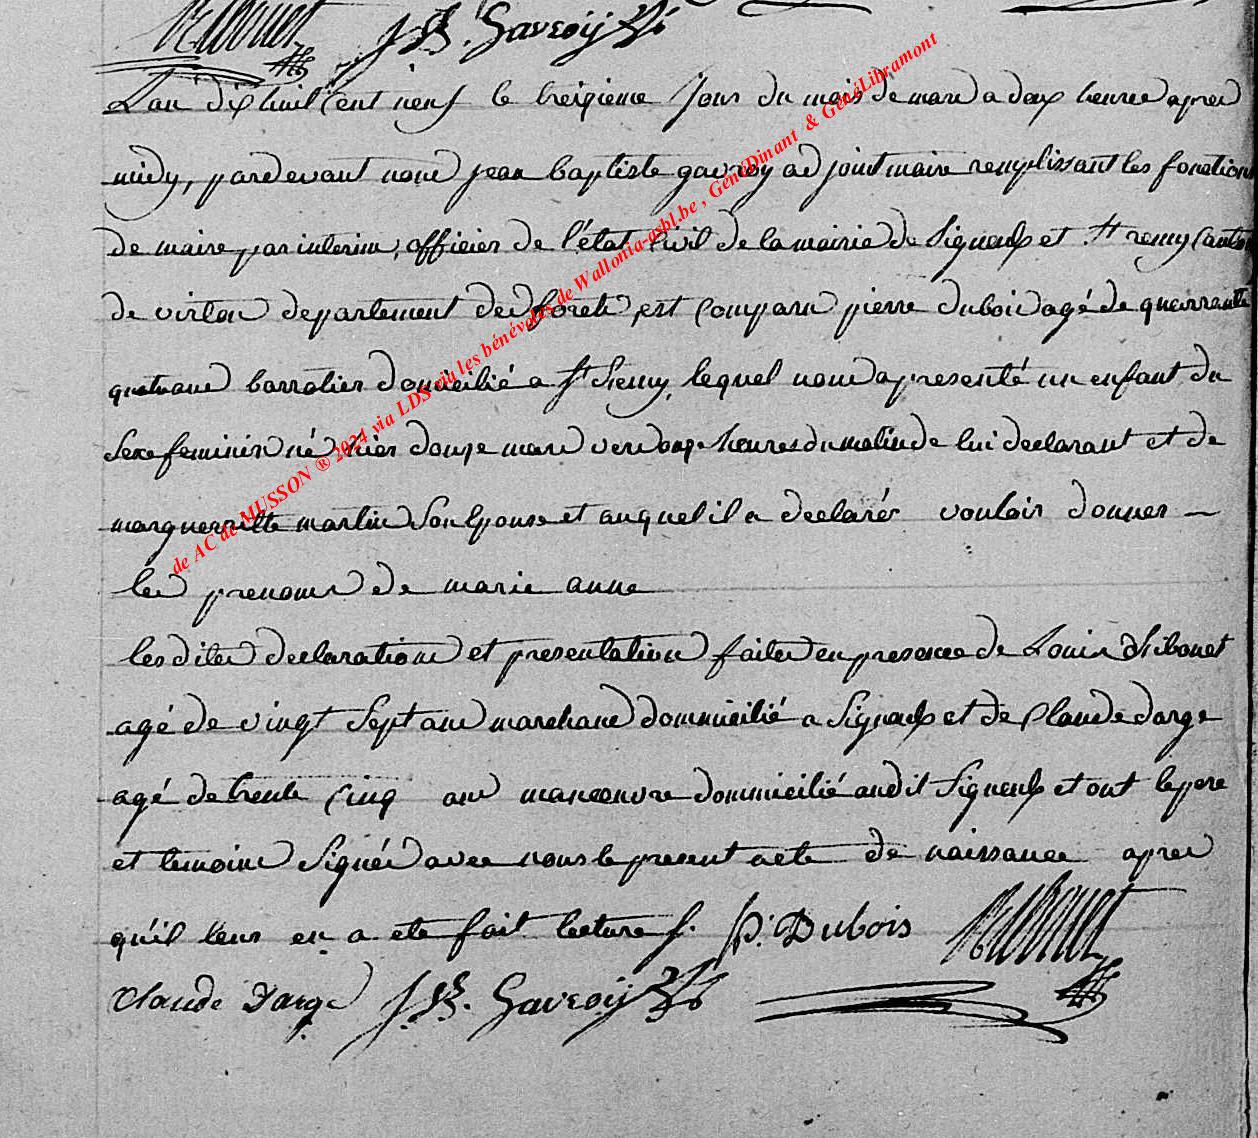 J.B. Gavroÿ
L'an dix huit cent neuf le treizieme Jour du mois de mars a deux heures apres
midy, pardevant nous jean baptiste gavroy adjoint maire remplissant les fonctions
de maire par interim, officier de l'état Civil de la mairie de Signeulx et St remy Canton
de virton departement des forets, est Comparu pierre dubois agé de quarrante
quatre ans domicilié a St Remy, lequel nous a presenté un enfant du
Sexe feminin né hier douze mars vers onze heures du matin de lui declarant et de
marguerritte martin Son Epouse et auquel il a declarér vouloir donner —
les prenoms de marie anne
les dites declaration et presentation faites en presence de Louis
agé de vingt Sept ans marchand dommicilié a Signeulx et de Claude darge
agé de trente Cinq ans manoeuvre dommicilié audit Signeulx et ont le pere
et temoins Signés avec nous le present acte de naissance apres
qu'il leur en a eté fait lecture f. P. Dubois
Claude Darge J.B. Gavroÿ
de AC de MUSSON ® 2024 via LDS via les bénévoles de Wallonia-asbl.be , GénéDinant & GénéLibramont